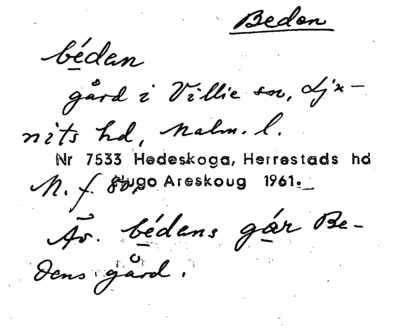 Bedon
bédan
gård i Villie sn, Ljx-
nits hd, Malm. l.
Nr 7533 Hedeskoga, Herrestads hd
M. f. 80, Hugo Areskoug 1961.
Äv. bédans gár Be-
dens gård.